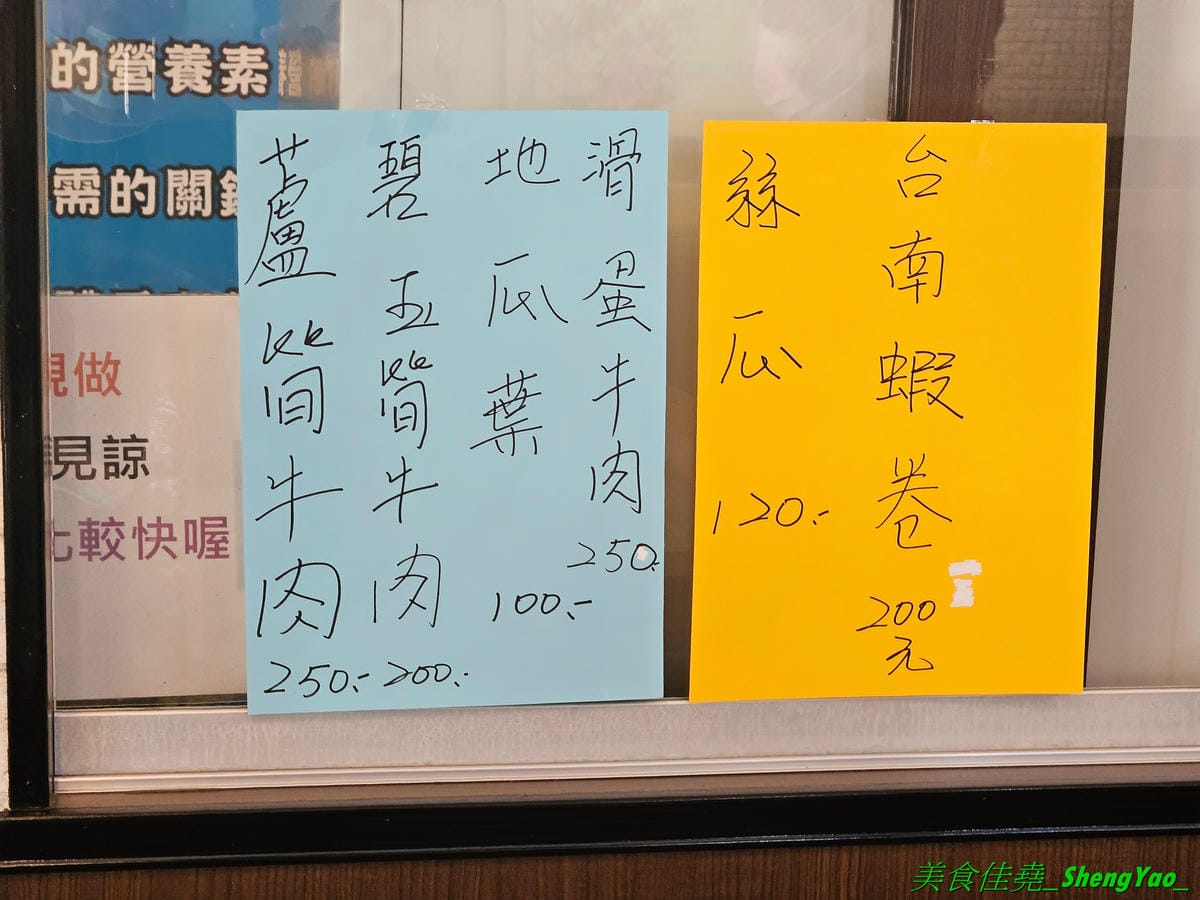 的營養素
需的關鍵
現做
見諒
比較快喔
滑蛋牛肉 250.
地瓜葉 100.-
碧玉筍牛肉 200.-
蘆筍牛肉 250.-
台南蝦卷 200元
絲瓜 120.-
美食佳堯_ShengYao_